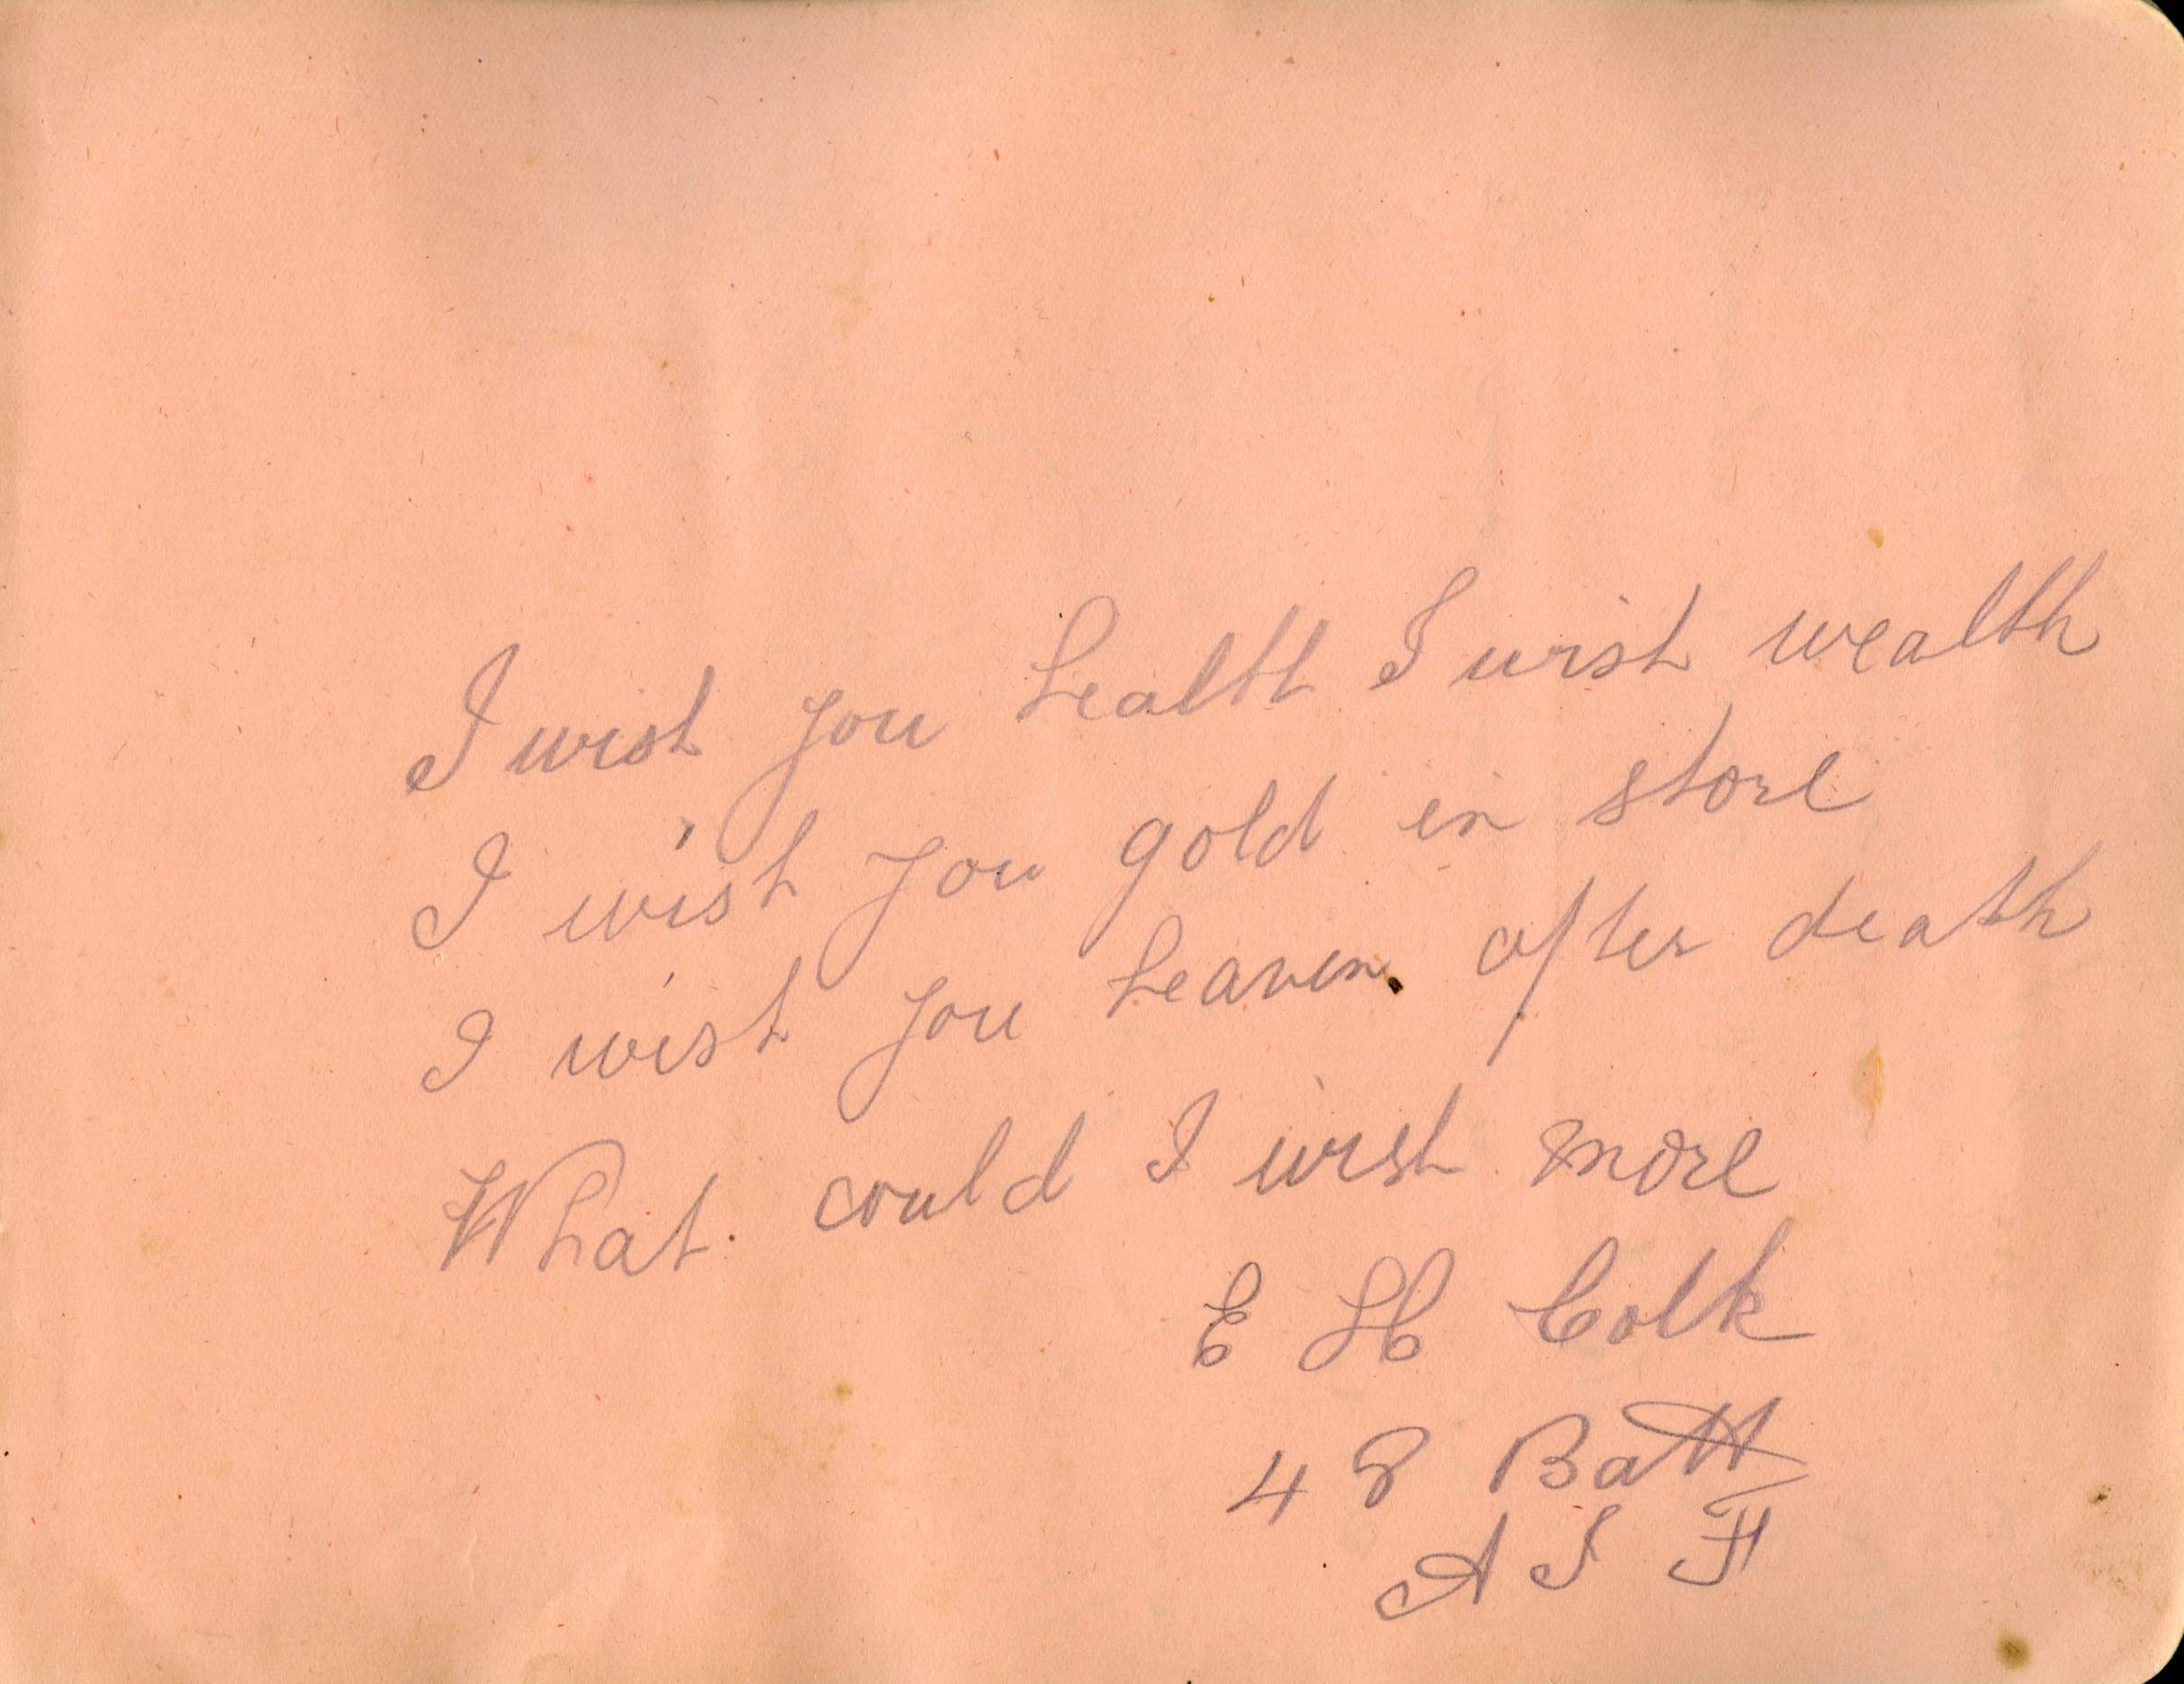 I wish you health I wish wealth
I wish you gold in store
I wish you heaven after death
What could I wish more
E H Colk
48 Batt
A I F